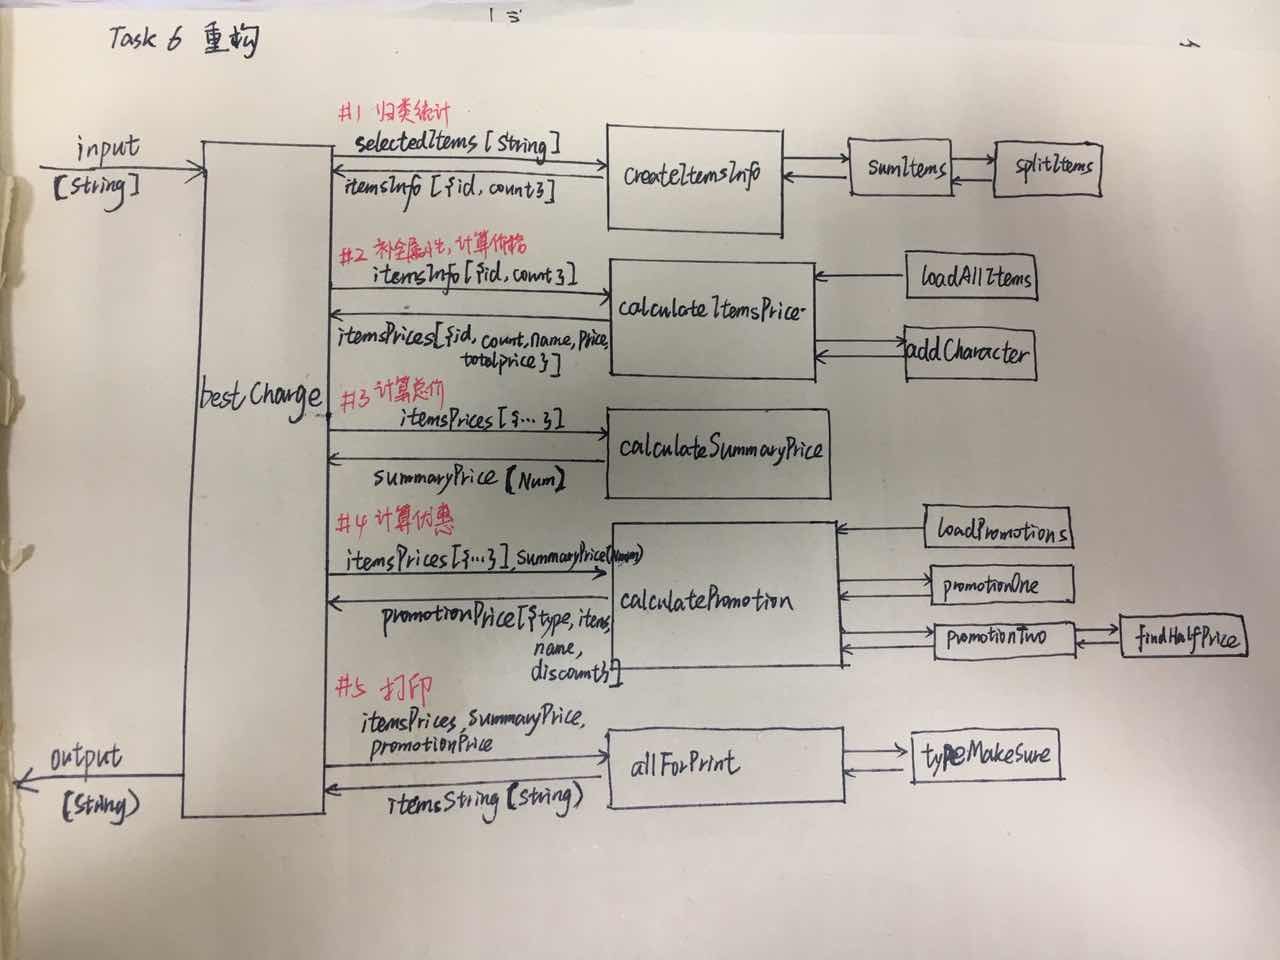 Task 6 重构
input
[String]
#1 归类统计
selectedItems [String]
itemsInfo [{id, count}]
createItemsInfo
sumItems
splitItems
#2 补全属性, 计算价格
itemsInfo [{id, count}]
itemsPrices [{id, count, name, Price,
totalprice}]
calculateItemsPrice
loadAllItems
addCharacter
bestCharge
#3 计算总价
itemsPrices [{...}]
summaryPrice [Num]
calculateSummaryPrice
#4 计算优惠
itemsPrices [{...}], SummaryPrice(Num)
promotionPrice [{type, items,
name,
discount}]
calculatePromotion
loadPromotions
promotionOne
promotionTwo
findHalfPrice
#5 打印
itemsPrices, SummaryPrice,
promotionPrice
itemsString (String)
allForPrint
typeMakeSure
output
(String)